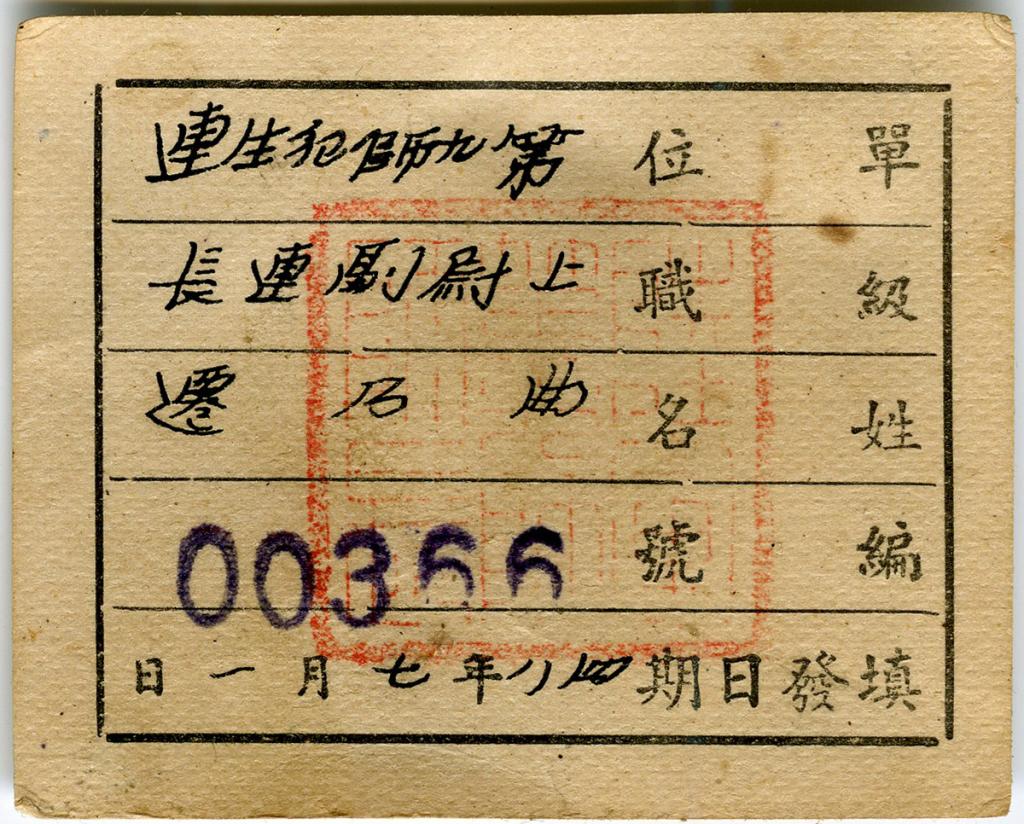 單位 第九師生連
級職 上尉副連長
姓名 曲乃遷
編號 00366
填發日期 四八年七月一日